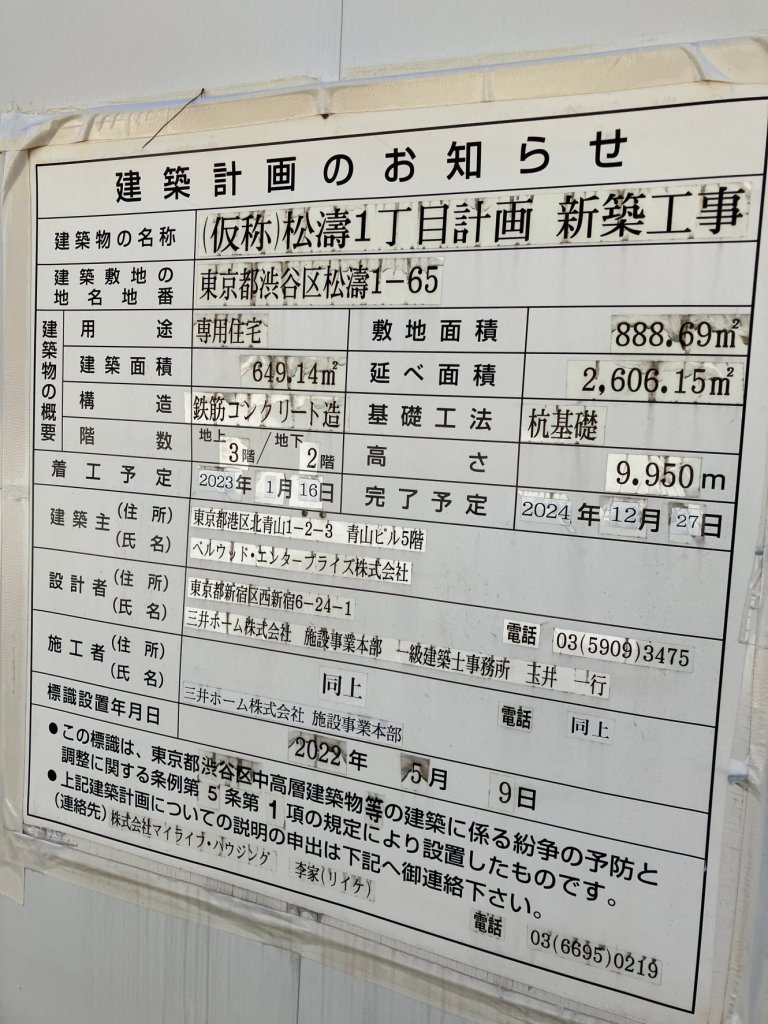 建築計画のお知らせ
建築物の名称 (仮称)松濤1丁目計画 新築工事
建築敷地の地名地番 東京都渋谷区松濤1-65
建築物の概要
用途 専用住宅 敷地面積 888.69㎡
建築面積 649.14㎡ 延べ面積 2,606.15㎡
構造 鉄筋コンクリート造 基礎工法 杭基礎
階数 地上3階/地下2階 高さ 9.950m
着工予定 2023年 1月 16日 完了予定 2024年 12月 27日
建築主 (住所) 東京都港区北青山1-2-3 青山ビル5階
(氏名) ベルウッド・エンタープライズ株式会社
設計者 (住所) 東京都新宿区西新宿6-24-1 電話 03(5909)3475
(氏名) 三井ホーム株式会社 施設事業本部 一級建築士事務所 玉井 一行
施工者 (住所) 同上 電話 同上
(氏名) 三井ホーム株式会社 施設事業本部
標識設置年月日 2022年 5月 9日
●この標識は、東京都渋谷区中高層建築物等の建築に係る紛争の予防と
調整に関する条例第5条第1項の規定により設置したものです。
●上記建築計画についての説明の申出は下記へ御連絡下さい。
(連絡先) 株式会社マイライフ・ハウジング 李家(リイケ) 電話 03(6695)0219